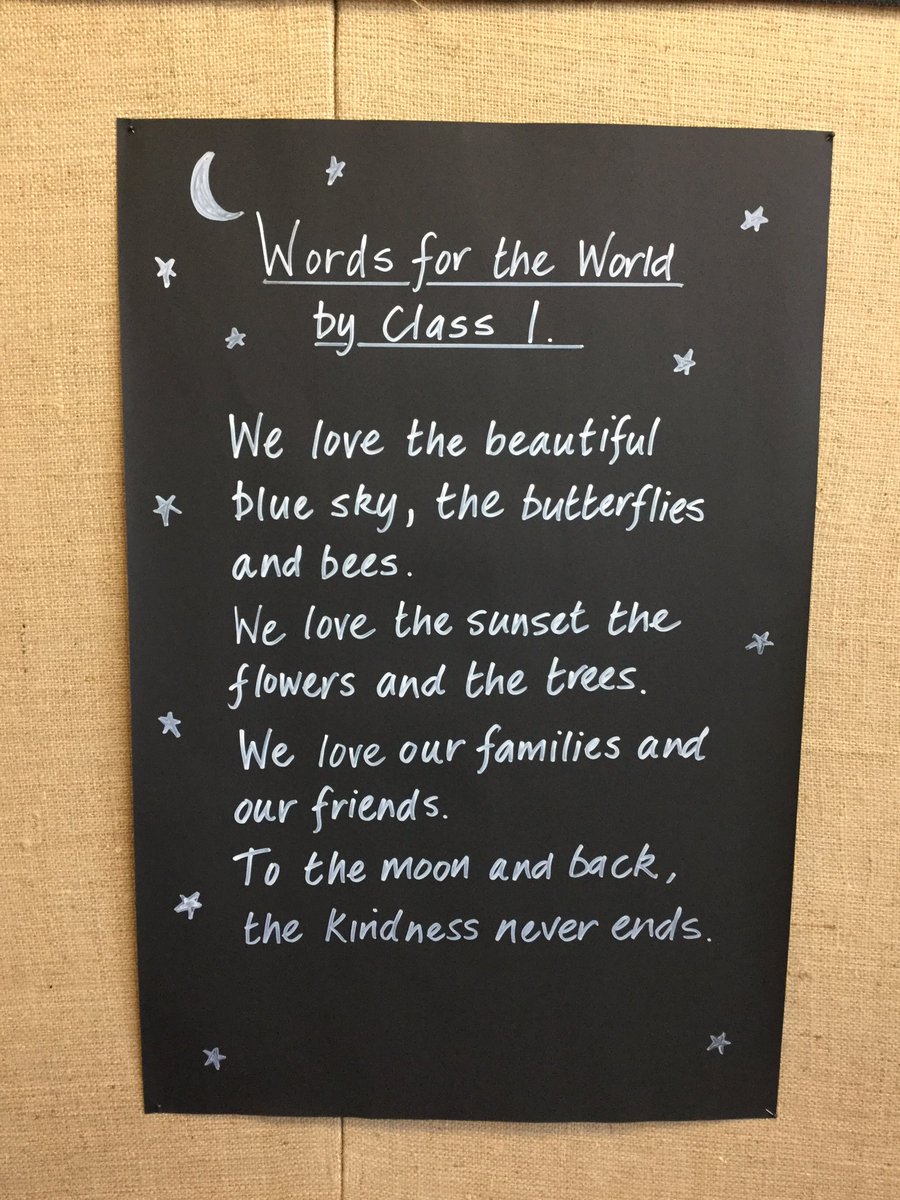 Words for the World
by Class 1.
We love the beautiful
blue sky, the butterflies
and bees.
We love the sunset the
flowers and the trees.
We love our families and
our friends.
To the moon and back,
the kindness never ends.